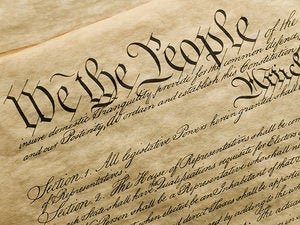 We the People of the
insure domestic Tranquility, provide for the common defence,
and our Posterity, do ordain and establish this Constitution
Article
Section 1. All legislative Powers herein granted shall be
of Representatives.
Section 2. The House of Representatives shall be com
in each State shall have Qualifications requisite for Electors
No Person shall be a Representative who shall
when elected, be an Inhabitant of that
and direct Taxes shall be appor
by adding to the